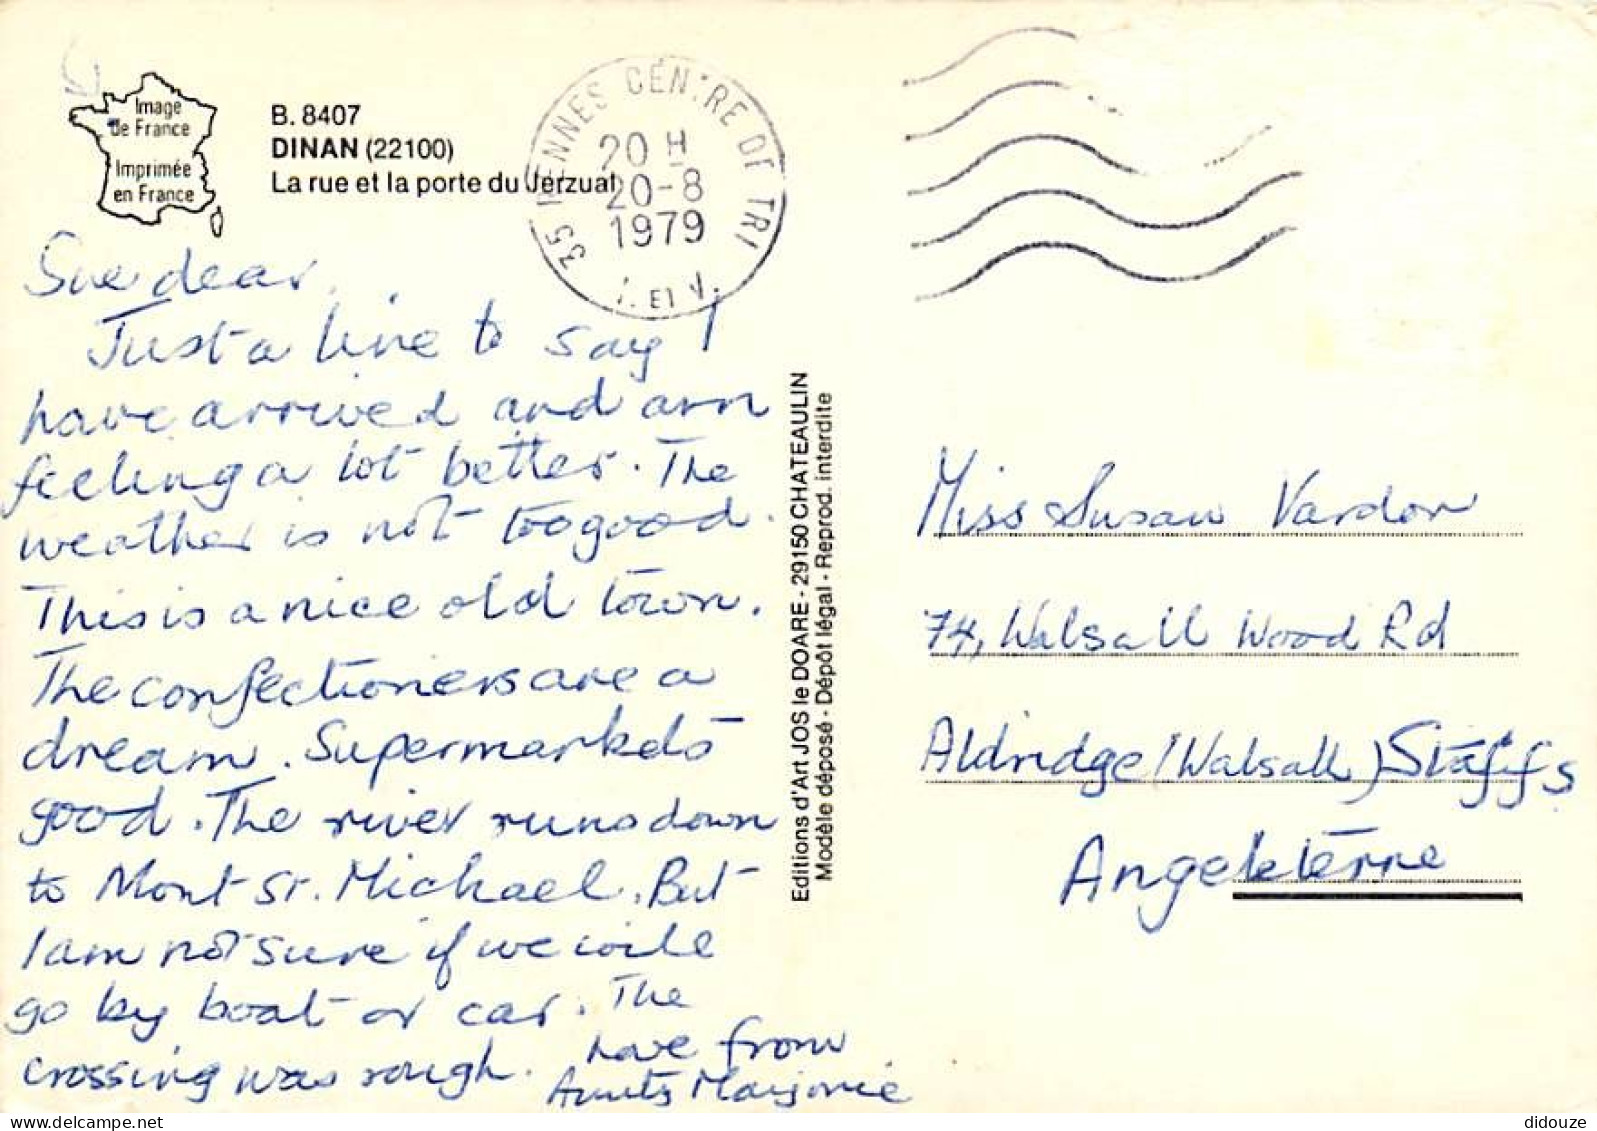 Image
de France
Imprimée
en France
B. 8407
DINAN (22100)
La rue et la porte du Jerzual
35 RENNES CENTRE DE TRI
20 H
20-8
1979
I. ET V.
Sue dear,
Just a line to say I
have arrived and am
feeling a lot better. The
weather is not too good.
This is a nice old town.
The confectioners are a
dream. Supermarkets
good. The river runs down
to Mont St. Michael. But
I am not sure if we will
go by boat or car. The
crossing was rough.
Love from
Aunty Marjorie
Editions d'Art JOS le DOARE - 29150 CHATEAULIN
Modèle déposé - Dépôt légal - Reprod. interdite
Miss Susan Vardon
74, Walsall Wood Rd
Aldridge (Walsall) Staffs
Angeleterre
delcampe.net
didouze